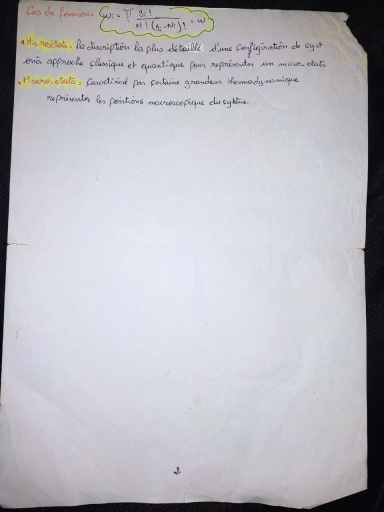 Cas de fermion. Wi = Π gi! / Ni! (gi - Ni)! = w
• Microétats. la description la plus détaillé d'une configuration de syst
on a approche classique et quantique pour représenter un micro etats
• Macro.etats. Caractérisé par certaine grandeur thermodynamique
représentes les positions macroscopique du système.
2